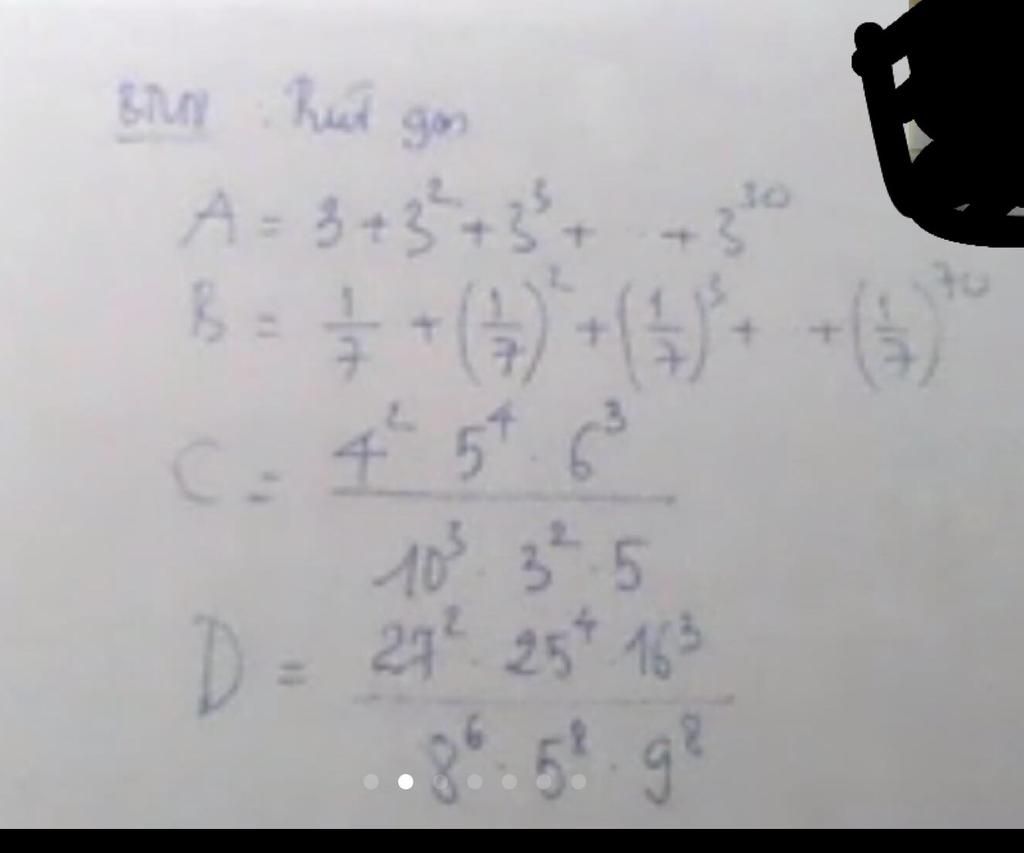 BTVN : Rút gọn
A = 3 + 3² + 3³ + .. + 3³⁰
B = 1/7 + (1/7)² + (1/7)³ + .. + (1/7)⁷⁰
C = 4² 5⁴ . 6³ / 10³ . 3² . 5
D = 27² . 25⁴ . 16³ / 8⁶ . 5⁸ . 9⁸